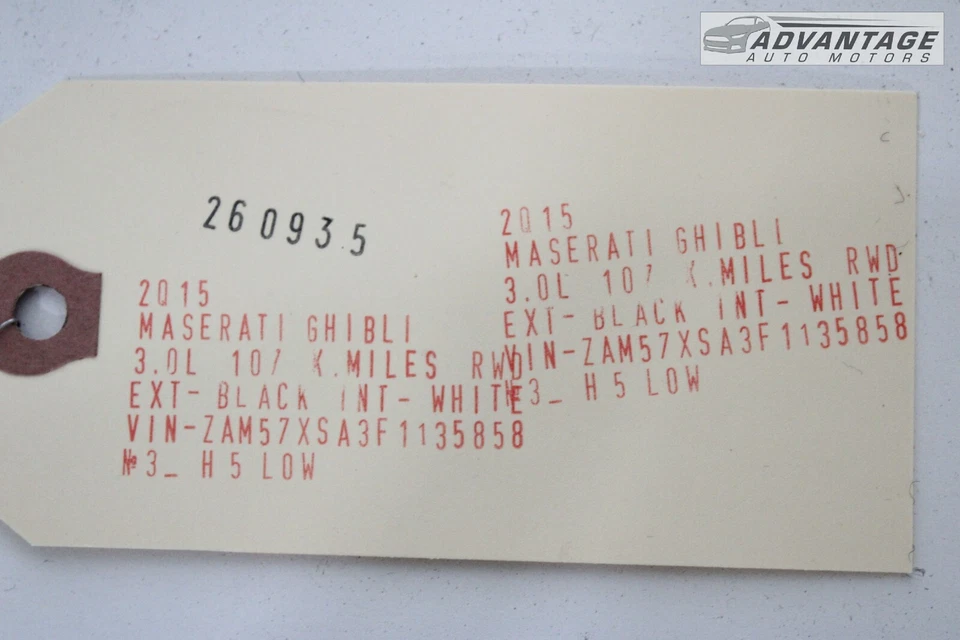 ADVANTAGE
AUTO MOTORS
260935
2015
MASERATI GHIBLI
3.0L 107 K.MILES RWD
EXT- BLACK INT- WHITE
VIN-ZAM57XSA3F1135858
№3_ H5 LOW
2015
MASERATI GHIBLI
3.0L 107 K.MILES RWD
EXT- BLACK INT- WHITE
VIN-ZAM57XSA3F1135858
№3_ H5 LOW